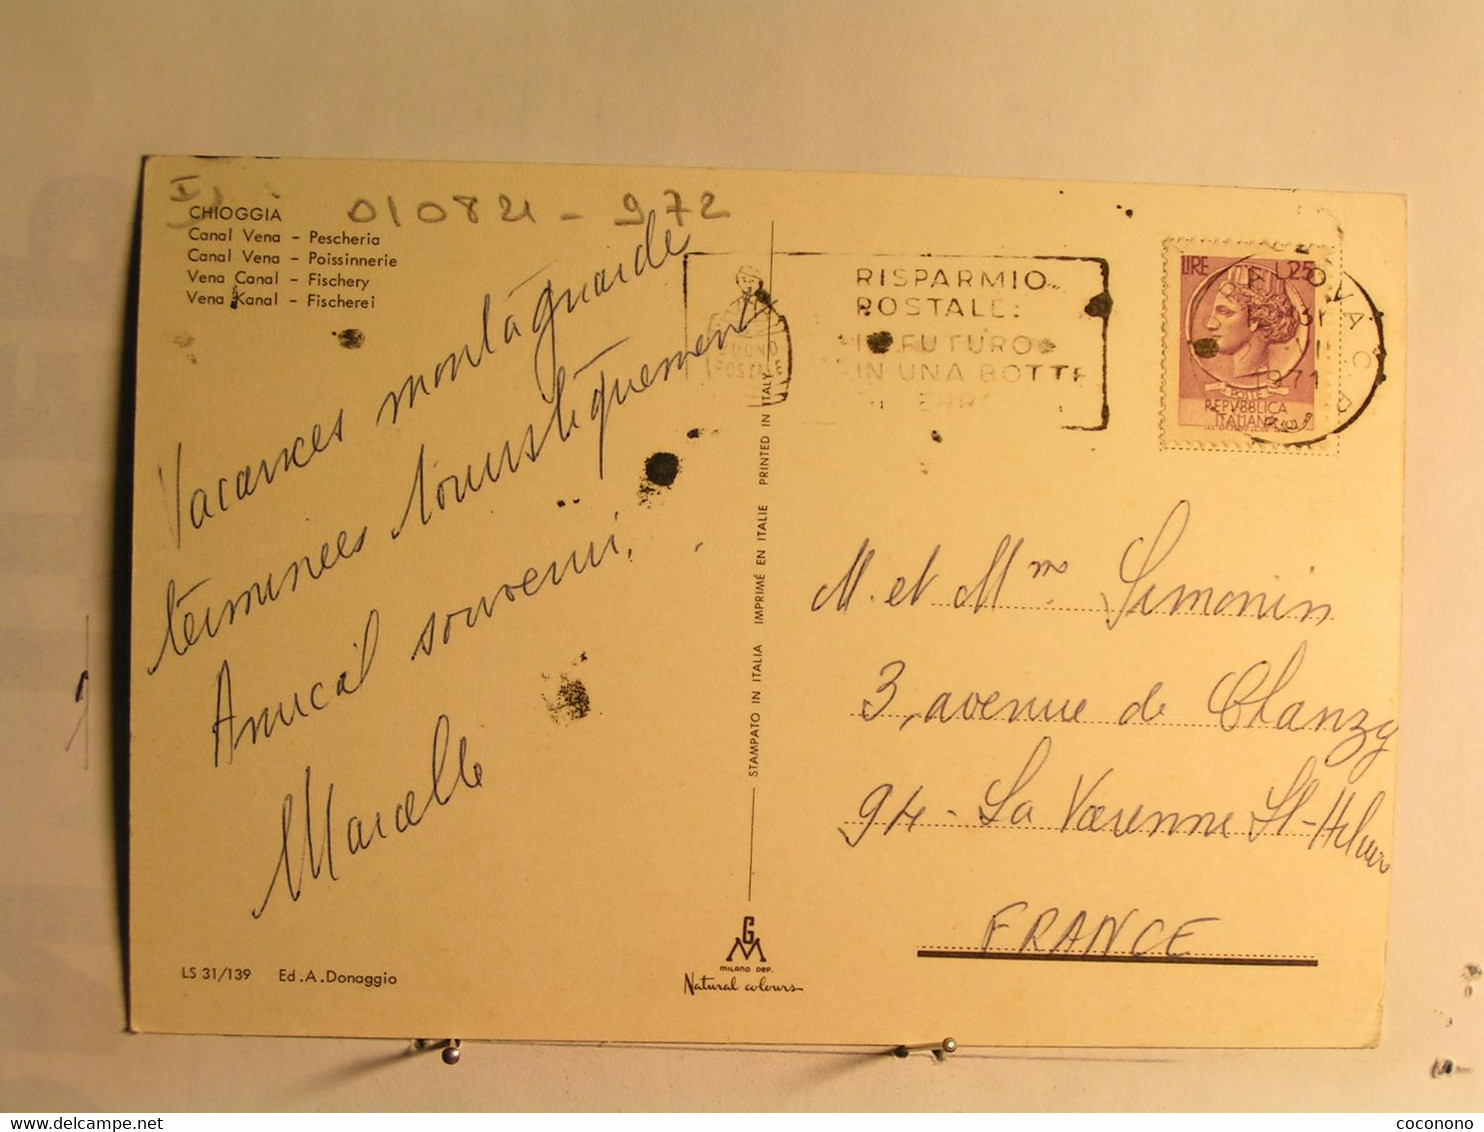 CHIOGGIA
Canal Vena - Pescheria
Canal Vena - Poissinnerie
Vena Canal - Fischery
Vena Kanal - Fischerei
010821 - 972
Vacances montagnarde
terminées touristiquement
Amical souvenir.
Marcelle
LS 31/139 Ed. A. Donaggio
STAMPATO IN ITALIA IMPRIMÉ EN ITALIE PRINTED IN ITALY
GM
MILANO DEP.
Natural colours
BUONO
POSTALE
RISPARMIO
POSTALE:
FUTURO
IN UNA BOTTE
LIRE 25
POSTE
REPVBBLICA
ITALIANA
PADOVA
1971
M. et Mme Simonin
3, avenue de Chanzy
94 - La Varenne St-Hilaire
FRANCE
coconono